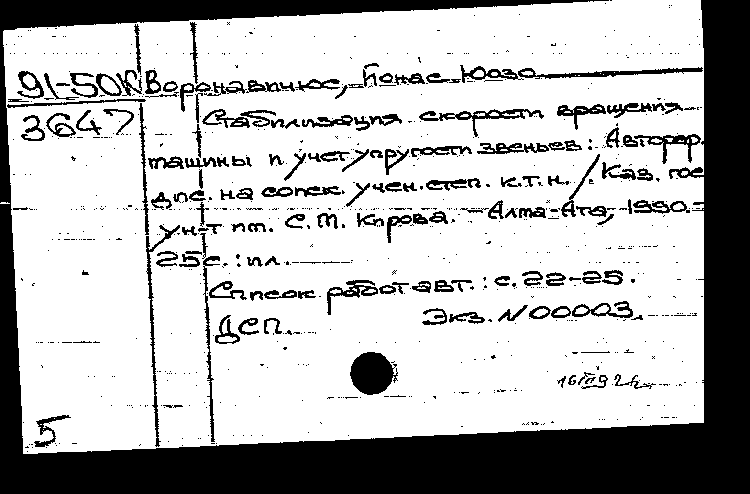 91-50К Воронавичюс, Ионас Юозо
3647 Стабилизация скорости вращения
машины и учет упругости звеньев: Автореф.
дис. на соиск. учен. степ. к.т.н. / Каз. гос
ун-т им. С.М. Кирова. - Алма-Ата, 1990. -
25с.: ил.
Список работ авт.: с. 22-25.
ДСП. Экз. N 00003.
16/III 92
5